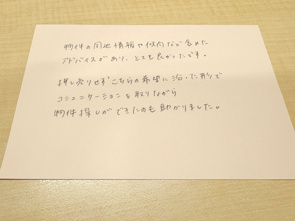 物件の周辺情報や傾向など含めた
アドバイスがあり、とても良かったです。
押し売りせずこちらの希望に沿った形で
コミュニケーションを取りながら
物件探しができたのも助かりました。